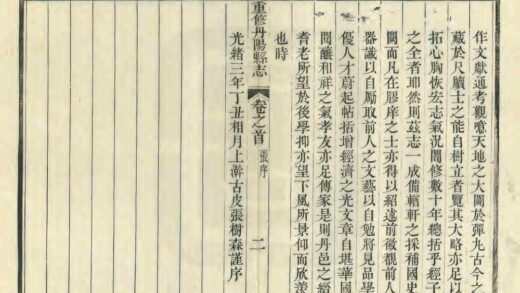 作文獻通考觀噫天地之大闢於彈九古今之
藏於尺牘士之能自樹立者覽其大略亦足以
拓心胸恢宏志氣況閱修數十年總括乎經子
之全者耶然則茲志一成備輶軒之採補國史
闕而凡在膠庠之士亦得以紹述前徽覩前人
器識以自勵取前人之文藝以自勉將見品學
優人才蔚起帖括增經濟之光文章自堪華國
閭釀和祥之氣孝友亦足傳家是則丹邑之縉
耆老所望於後學抑亦望下風所景仰而欣羨
也時
光緒三年丁丑相月上澣古皮張樹森謹序
重修丹陽縣志
卷之首
張序
二